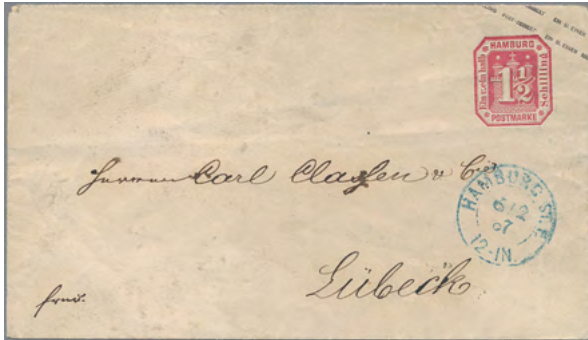 HAMBURG
Ein u. ein halb
1 1/2
Schilling
POSTMARKE
Herren Carl Classen & Co
HAMBURG St. P.
6/2
67
12-1N.
Lübeck
frei.